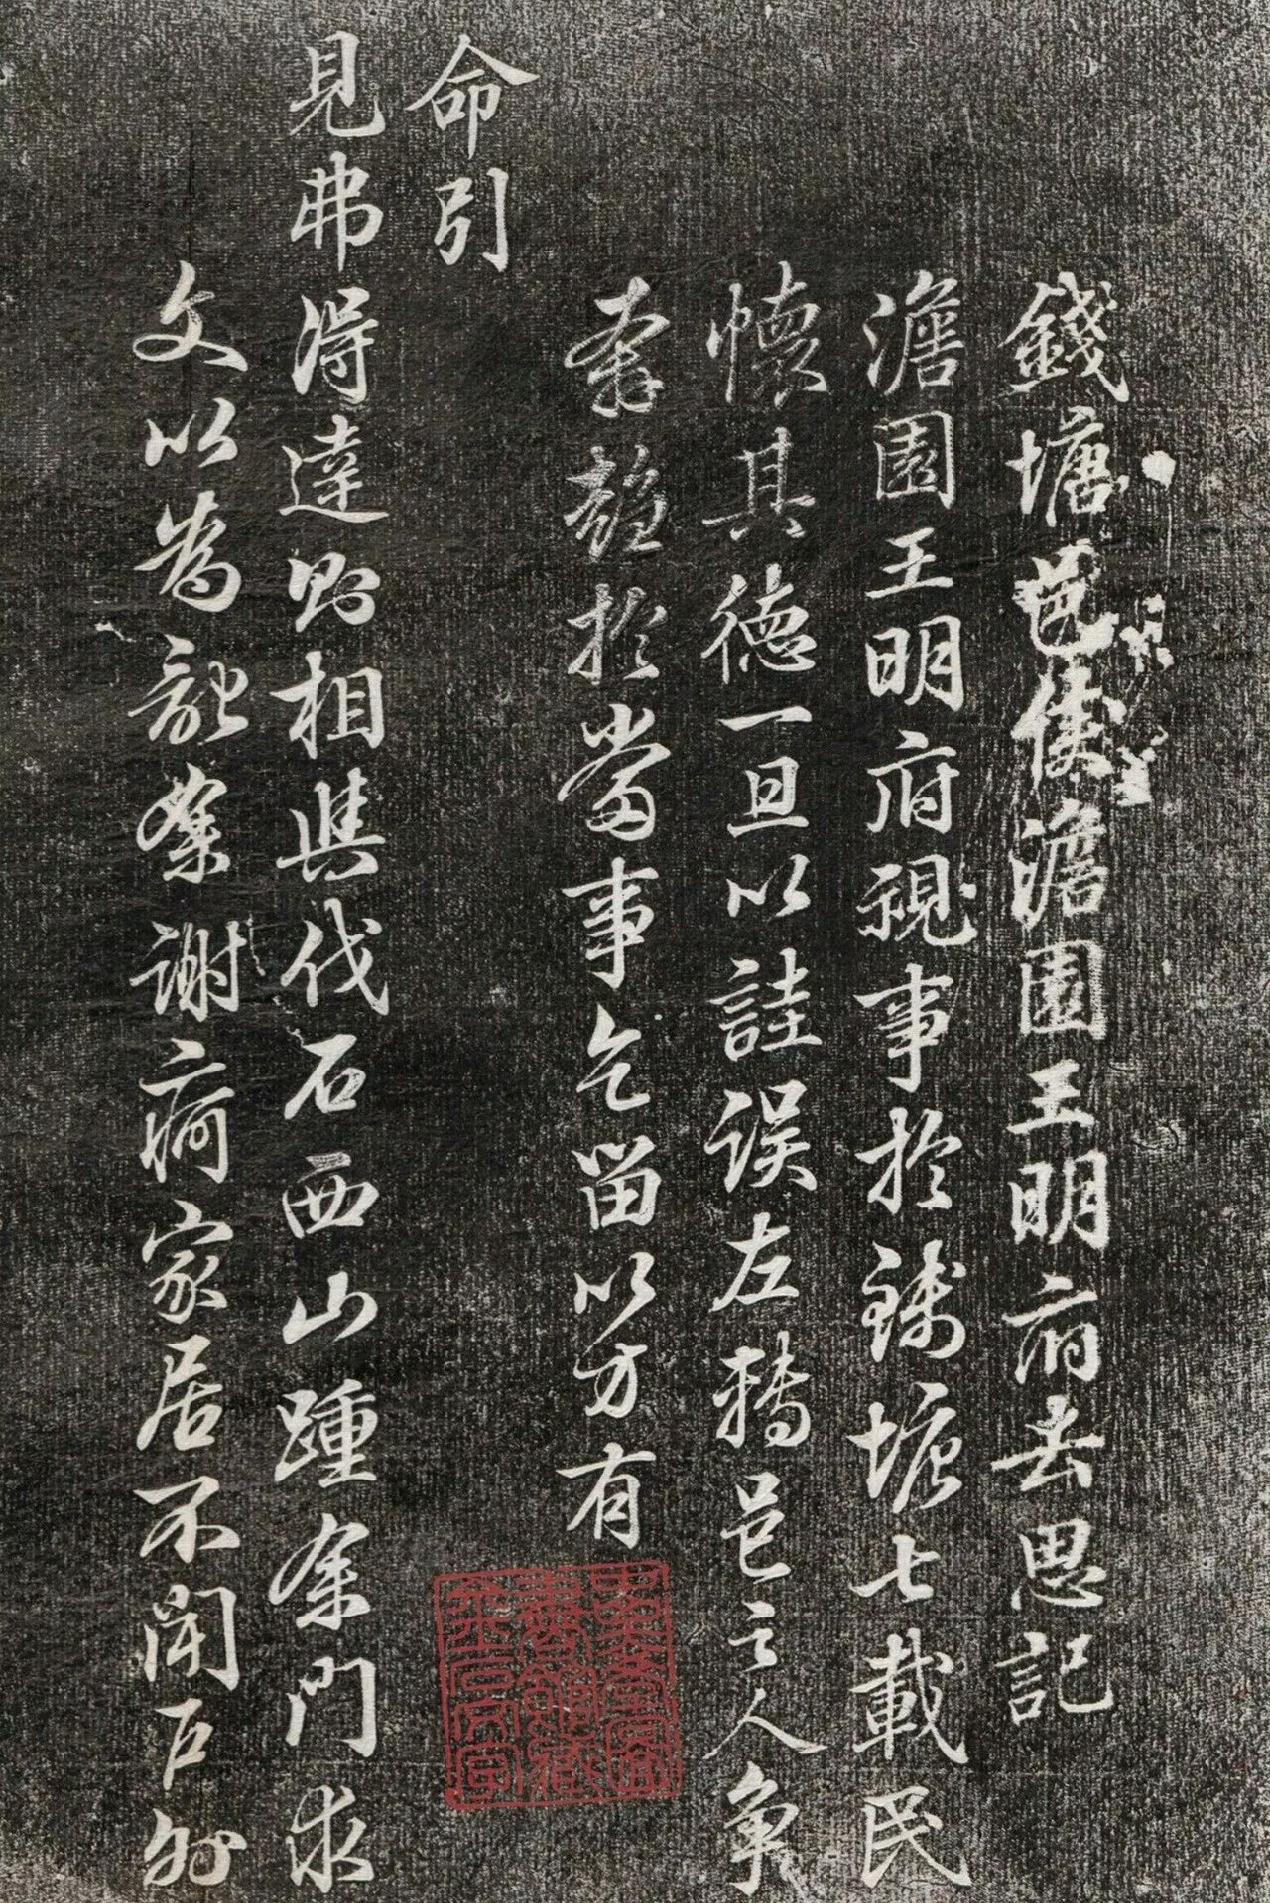 錢塘邑侯澹園王明府去思記
澹園王明府視事於錢塘七載民
懷其德一旦以詿误左轉邑之人争
奔於當事乞留以方有
命引
見弗得達則相與伐石西山踵余門求
文以為記余謝病家居不聞户外